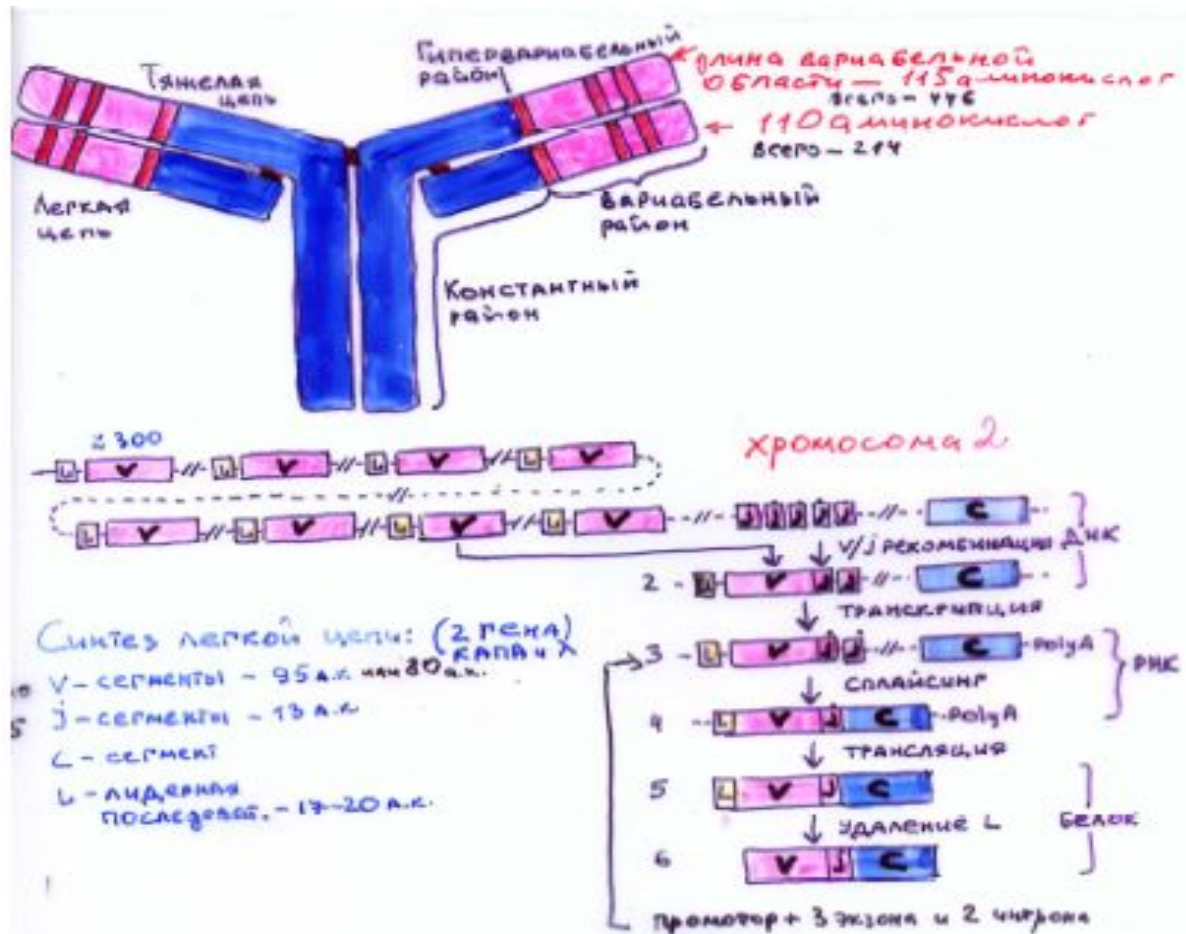 Гипервариабельный
район
Тяжелая
цепь
длина вариабельной
области – 115 аминокислот
всего – 446
110 аминокислот
всего – 214
Легкая
цепь
вариабельный
район
Константный
район
≤ 300
хромосома 2
L V // L V // L V // L V
//
L V // L V // L V // L V // j j j j j // C
V/j рекомбинация ДНК
2 L V j j // C
транскрипция
3 L V j j // C PolyA
РНК
сплайсинг
4 L V j C PolyA
трансляция
5 L V j C
Белок
удаление L
6 V j C
промотор + 3 экзона и 2 интрона
Синтез легкой цепи: (2 гена)
капа и λ
V – сегменты – 95 а.к. или 80 а.к.
j – сегменты – 13 а.к
C – сегмент
L – лидерная
последоват. – 17-20 а.к.